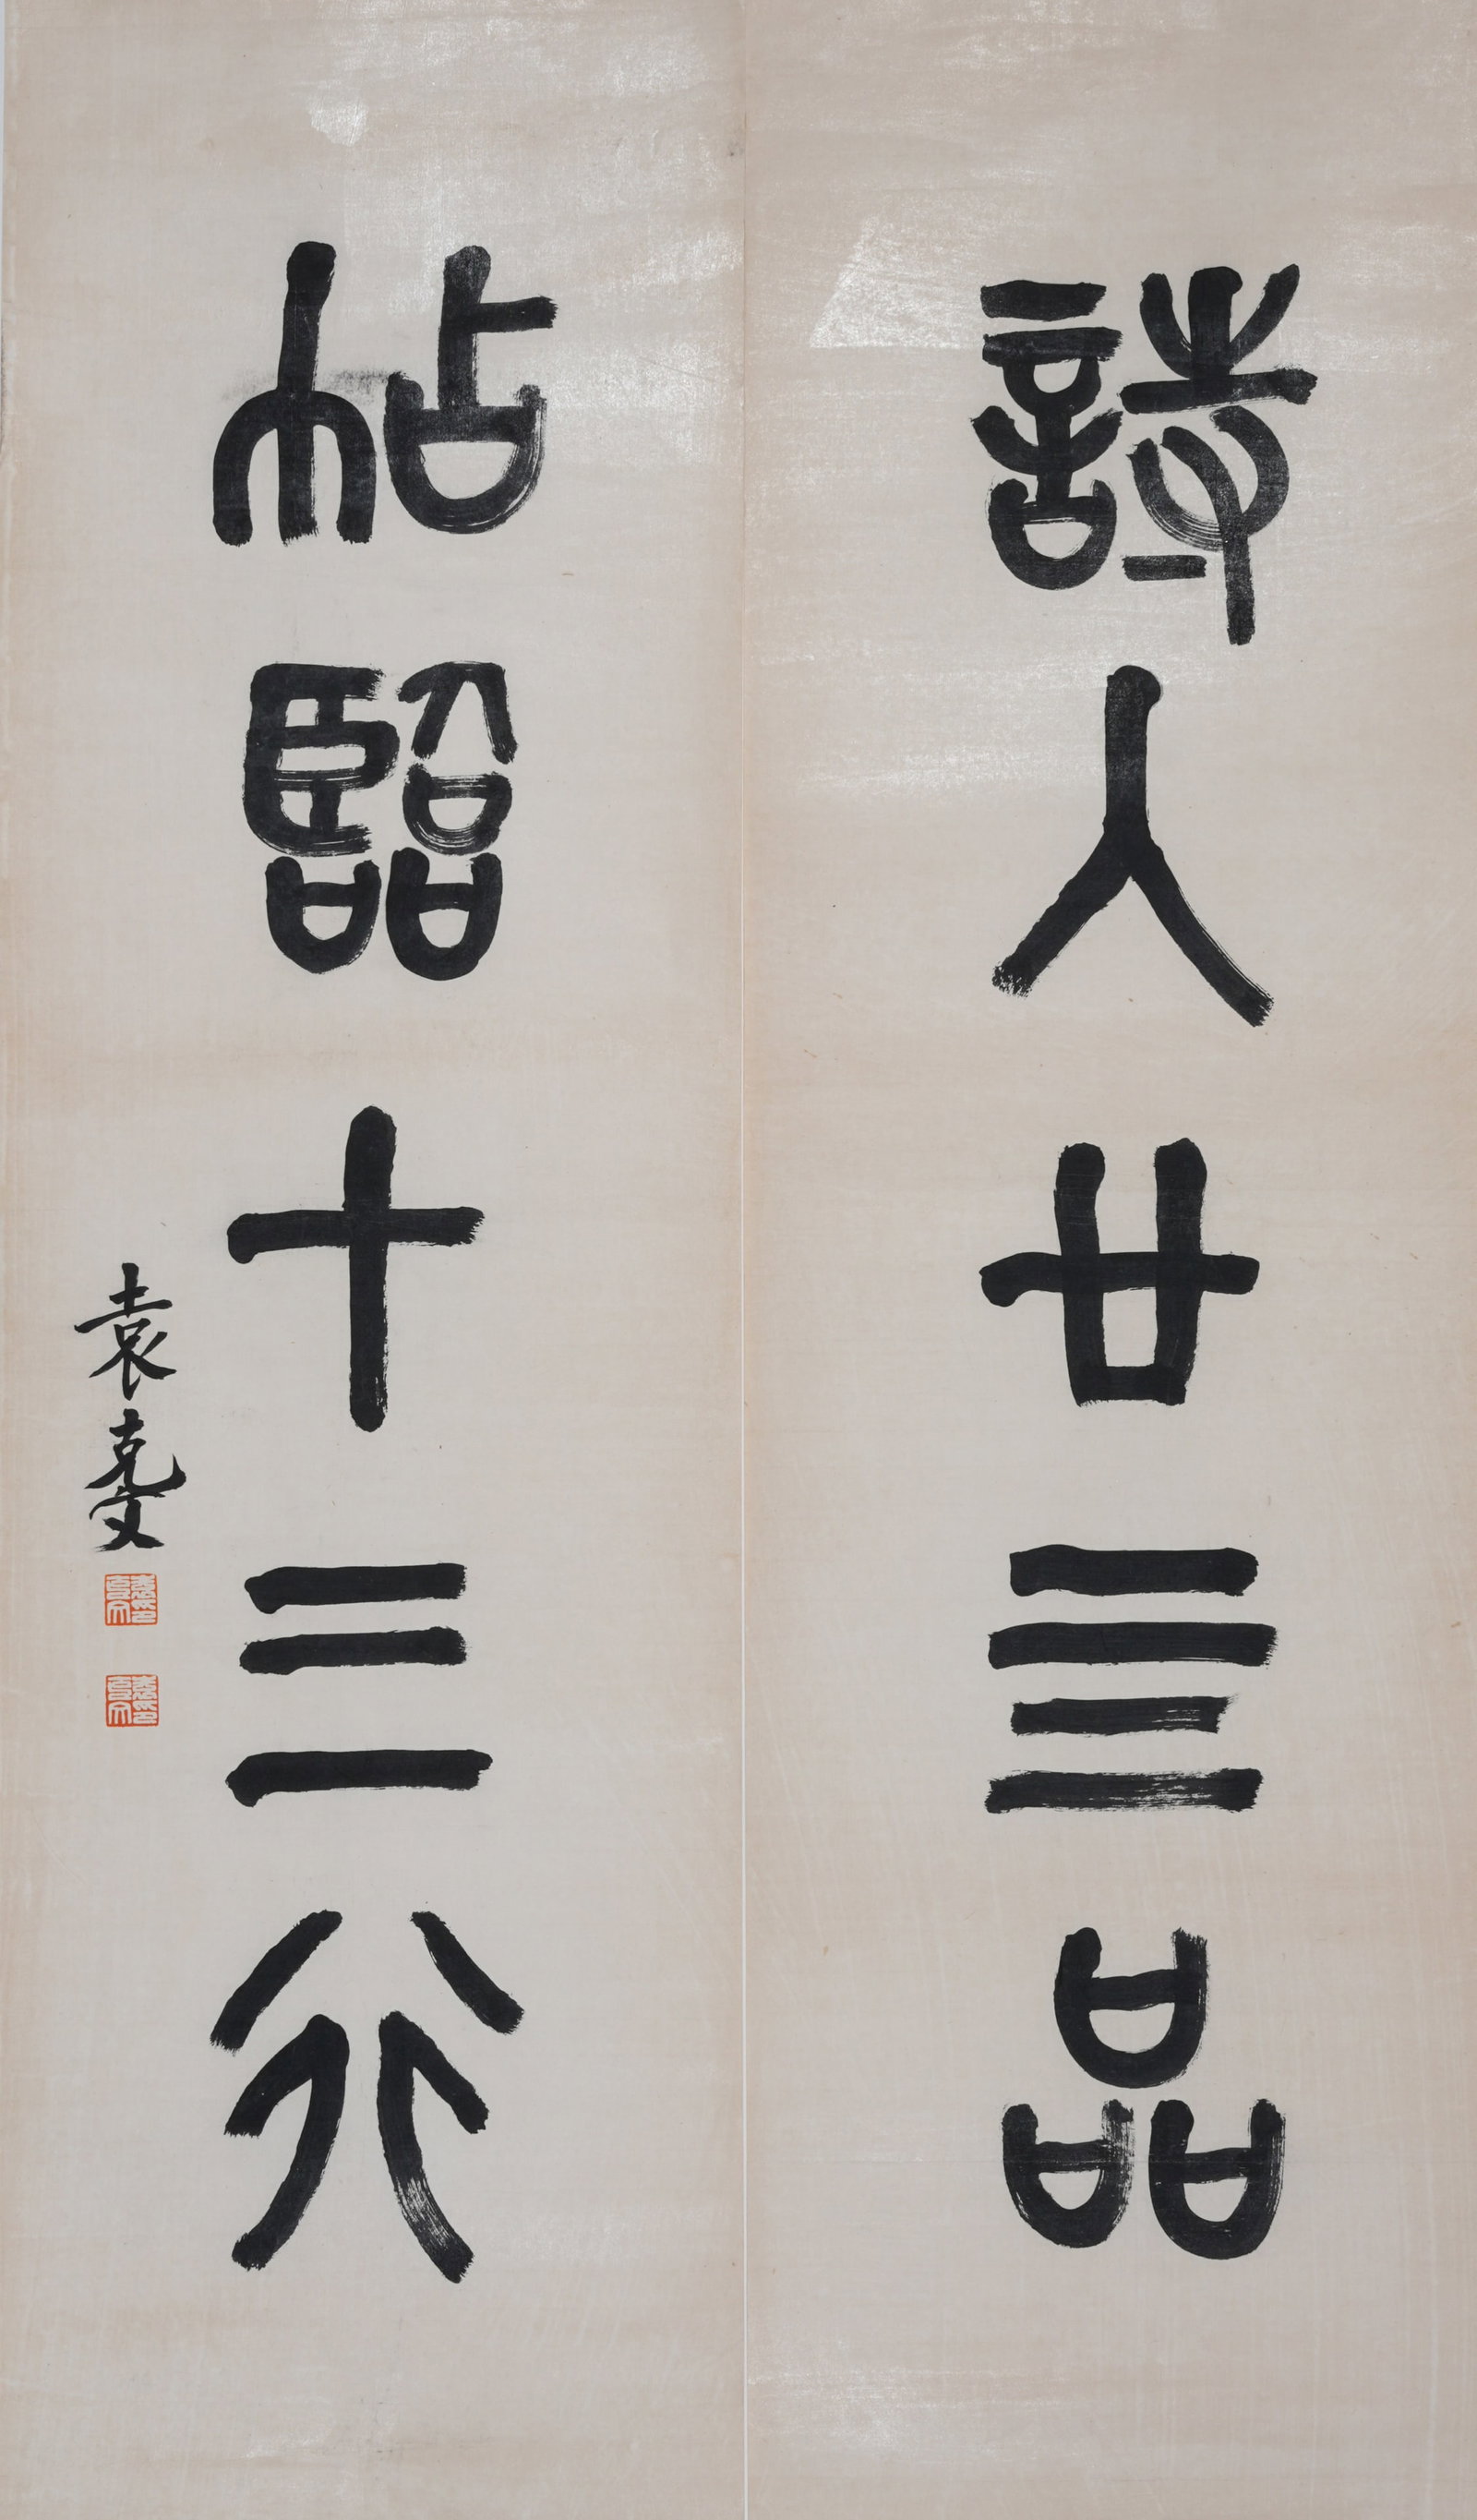 詩人廿三品
帖臨十三行
袁克文